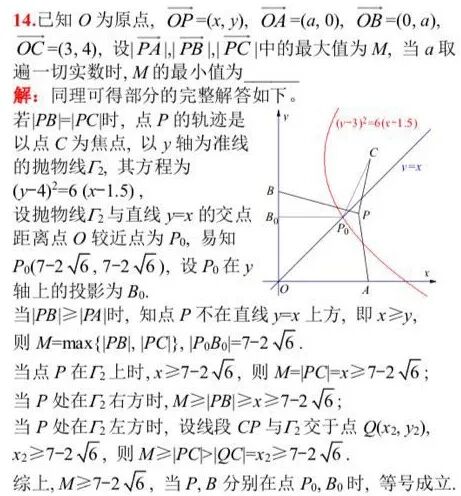 14.已知 O 为原点, OP=(x, y), OA=(a, 0), OB=(0, a),
OC=(3, 4), 设|PA|,|PB|,|PC|中的最大值为 M, 当 a 取
遍一切实数时, M 的最小值为______
解：同理可得部分的完整解答如下。
若|PB|=|PC|时, 点 P 的轨迹是
以点 C 为焦点, 以 y 轴为准线
的抛物线Γ₂, 其方程为
(y−4)²=6 (x−1.5) ,
设抛物线Γ₂与直线 y=x 的交点
距离点 O 较近点为 P₀, 易知
P₀(7−2√6, 7−2√6), 设 P₀ 在 y
轴上的投影为 B₀.
y
(y−3)²=6(x−1.5)
C
y=x
B
B₀
P
P₀
x
O
A
当|PB|≥|PA|时, 知点 P 不在直线 y=x 上方, 即 x≥y,
则 M=max{|PB|, |PC|}, |P₀B₀|=7−2√6 .
当点 P 在Γ₂上时, x≥7−2√6, 则 M=|PC|=x≥7−2√6 ;
当 P 处在Γ₂右方时, M≥|PB|≥x≥7−2√6 ;
当 P 处在Γ₂左方时, 设线段 CP 与Γ₂交于点 Q(x₂, y₂),
x₂≥7−2√6, 则 M≥|PC|>|QC|=x₂≥7−2√6 .
综上, M≥7−2√6, 当 P, B 分别在点 P₀, B₀时, 等号成立.